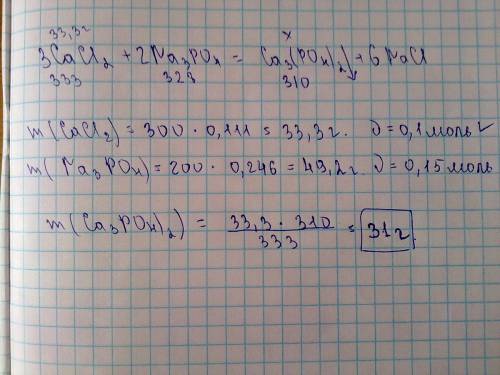 33,3г x
3CaCl₂ + 2Na₃PO₄ = Ca₃(PO₄)₂↓ + 6NaCl
333 328 310
m(CaCl₂) = 300 · 0,111 = 33,3г. ν = 0,1моль ✓
m(Na₃PO₄) = 200 · 0,246 = 49,2г. ν = 0,15моль
m(Ca₃PO₄)₂) = 33,3 · 310 / 333 = 31г.